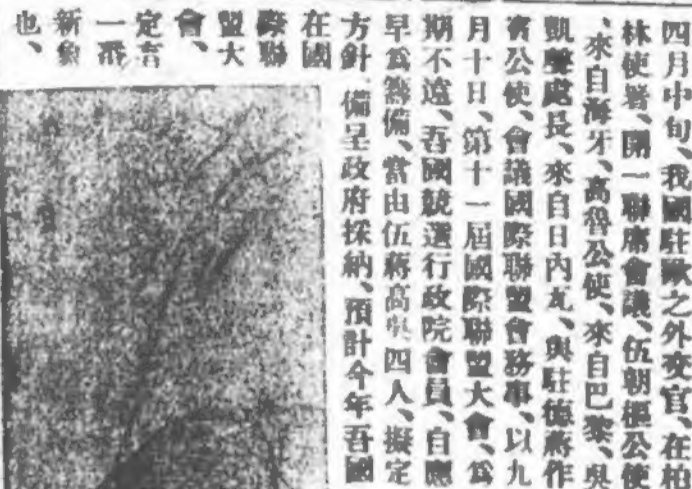 四月中旬、我國駐歐之外交官、在柏
林使署、開一聯席會議、伍朝樞公使
、來自海牙、高魯公使、來自巴黎、吳
凱聲處長、來自日內瓦、與駐德蔣作
賓公使、會議國際聯盟會務事、以九
月十日、第十一屆國際聯盟大會、爲
期不遠、吾國競選行政院會員、自應
早爲籌備、當由伍蔣高吳四人、擬定
方針、備呈政府採納、預計今年吾國
在國
際聯
盟大
會、
定言
一番
新象
也、